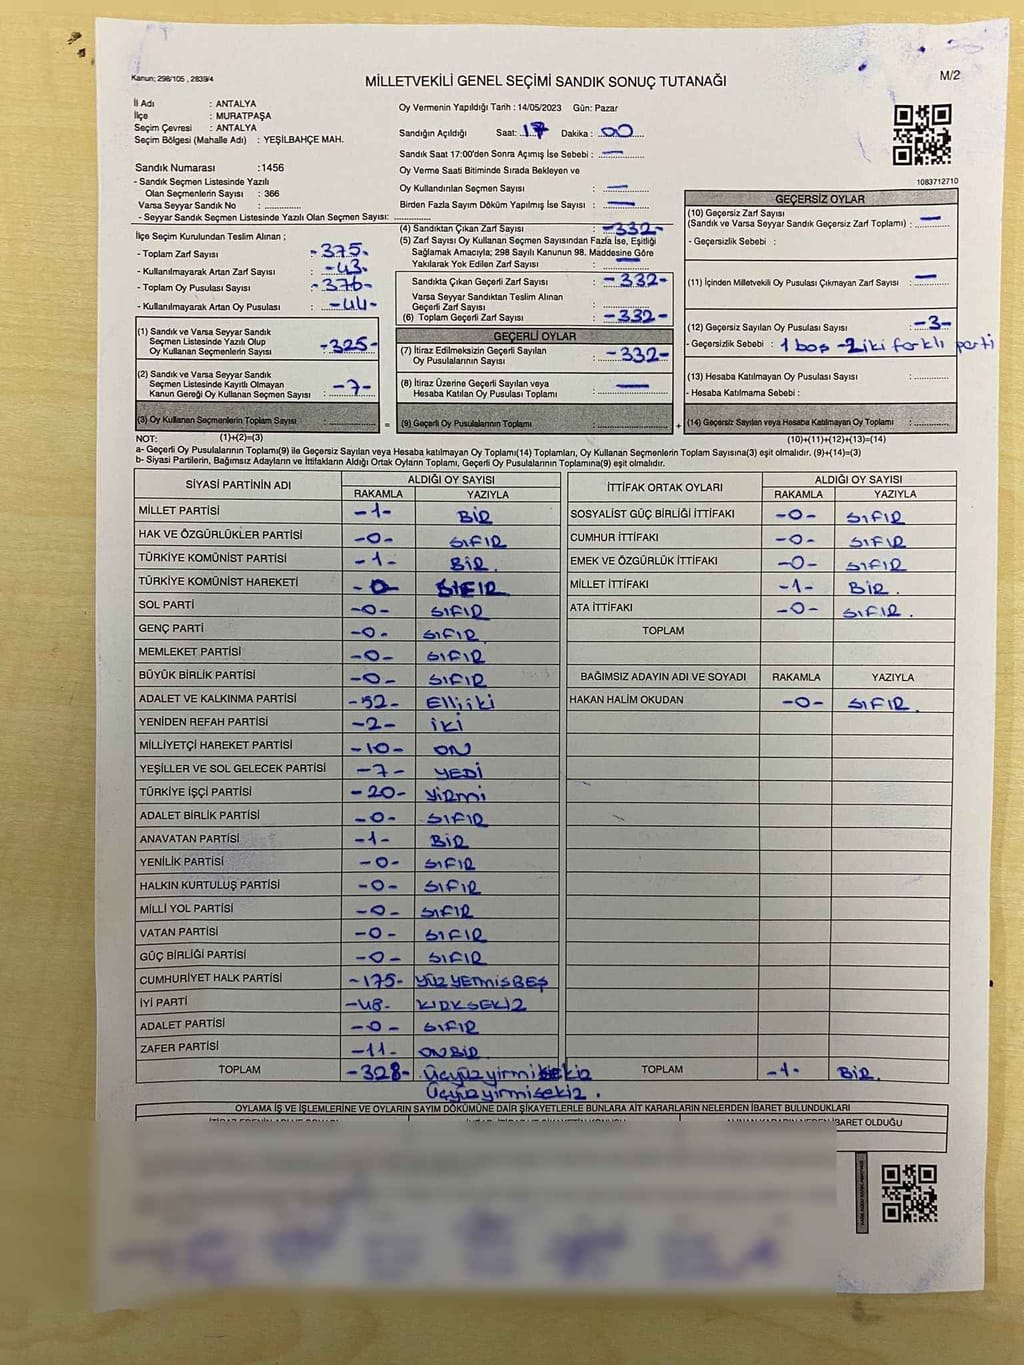 Kanun; 298/105 , 2839/4
MİLLETVEKİLİ GENEL SEÇİMİ SANDIK SONUÇ TUTANAĞI
M/2
İl Adı : ANTALYA
İlçe : MURATPAŞA
Seçim Çevresi : ANTALYA
Seçim Bölgesi (Mahalle Adı) : YEŞİLBAHÇE MAH.
Sandık Numarası :1456
- Sandık Seçmen Listesinde Yazılı
Olan Seçmenlerin Sayısı : 366
Varsa Seyyar Sandık No : ..............
- Seyyar Sandık Seçmen Listesinde Yazılı Olan Seçmen Sayısı: ..............
Oy Vermenin Yapıldığı Tarih : 14/05/2023 Gün: Pazar
Sandığın Açıldığı Saat: 17 Dakika : 00
Sandık Saat 17:00'den Sonra Açımış İse Sebebi : —
Oy Verme Saati Bitiminde Sırada Bekleyen ve
Oy Kullandırılan Seçmen Sayısı : —
Birden Fazla Sayım Döküm Yapılmış İse Sayısı : —
1083712710
İlçe Seçim Kurulundan Teslim Alınan ;
- Toplam Zarf Sayısı : -375-
- Kullanılmayarak Artan Zarf Sayısı : -43-
- Toplam Oy Pusulası Sayısı : -376-
- Kullanılmayarak Artan Oy Pusulası : -44-
(1) Sandık ve Varsa Seyyar Sandık
Seçmen Listesinde Yazılı Olup
Oy Kullanan Seçmenlerin Sayısı : -325-
(2) Sandık ve Varsa Seyyar Sandık
Seçmen Listesinde Kayıtlı Olmayan
Kanun Gereği Oy Kullanan Seçmen Sayısı : -7-
(3) Oy Kullanan Seçmenlerin Toplam Sayısı : ..............
(4) Sandıktan Çıkan Zarf Sayısı : -332-
(5) Zarf Sayısı Oy Kullanan Seçmen Sayısından Fazla İse, Eşitliği
Sağlamak Amacıyla; 298 Sayılı Kanunun 98. Maddesine Göre
Yakılarak Yok Edilen Zarf Sayısı : —
Sandıkta Çıkan Geçerli Zarf Sayısı : -332-
Varsa Seyyar Sandıktan Teslim Alınan
Geçerli Zarf Sayısı : ..............
(6) Toplam Geçerli Zarf Sayısı : -332-
GEÇERLİ OYLAR
(7) İtiraz Edilmeksizin Geçerli Sayılan
Oy Pusulalarının Sayısı : -332-
(8) İtiraz Üzerine Geçerli Sayılan veya
Hesaba Katılan Oy Pusulası Toplamı : —
= (9) Geçerli Oy Pusulalarının Toplamı : ..............
GEÇERSİZ OYLAR
(10) Geçersiz Zarf Sayısı
(Sandık ve Varsa Seyyar Sandık Geçersiz Zarf Toplamı) : —
- Geçersizlik Sebebi :
(11) İçinden Milletvekili Oy Pusulası Çıkmayan Zarf Sayısı : —
(12) Geçersiz Sayılan Oy Pusulası Sayısı : -3-
- Geçersizlik Sebebi : 1 boş -2 iki farklı parti
(13) Hesaba Katılmayan Oy Pusulası Sayısı : ..............
- Hesaba Katılmama Sebebi :
+ (14) Geçersiz Sayılan veya Hesaba Katılmayan Oy Toplamı : ..............
NOT: (1)+(2)=(3)
(10)+(11)+(12)+(13)=(14)
a- Geçerli Oy Pusulalarının Toplamı(9) ile Geçersiz Sayılan veya Hesaba katılmayan Oy Toplamı(14) Toplamları, Oy Kullanan Seçmenlerin Toplam Sayısına(3) eşit olmalıdır. (9)+(14)=(3)
b- Siyasi Partilerin, Bağımsız Adayların ve İttifakların Aldığı Ortak Oyların Toplamı, Geçerli Oy Pusulalarının Toplamına(9) eşit olmalıdır.
SİYASİ PARTİNİN ADI ALDIĞI OY SAYISI
RAKAMLA YAZIYLA
MİLLET PARTİSİ -1- BİR
HAK VE ÖZGÜRLÜKLER PARTİSİ -0- SIFIR
TÜRKİYE KOMÜNİST PARTİSİ -1- BİR.
TÜRKİYE KOMÜNİST HAREKETİ -0- SIFIR
SOL PARTİ -0- SIFIR
GENÇ PARTİ -0- SIFIR
MEMLEKET PARTİSİ -0- SIFIR
BÜYÜK BİRLİK PARTİSİ -0- SIFIR
ADALET VE KALKINMA PARTİSİ -52- Elliiki
YENİDEN REFAH PARTİSİ -2- iki
MİLLİYETÇİ HAREKET PARTİSİ -10- ON
YEŞİLLER VE SOL GELECEK PARTİSİ -7- YEDİ
TÜRKİYE İŞÇİ PARTİSİ -20- yirmi
ADALET BİRLİK PARTİSİ -0- SIFIR
ANAVATAN PARTİSİ -1- BİR
YENİLİK PARTİSİ -0- SIFIR
HALKIN KURTULUŞ PARTİSİ -0- SIFIR
MİLLİ YOL PARTİSİ -0- SIFIR
VATAN PARTİSİ -0- SIFIR
GÜÇ BİRLİĞİ PARTİSİ -0- SIFIR
CUMHURİYET HALK PARTİSİ -175- YÜZ YETMİSBEŞ
İYİ PARTİ -48- KIRKSEKİZ
ADALET PARTİSİ -0- SIFIR
ZAFER PARTİSİ -11- ONBİR
TOPLAM -328- Üçyüzyirmisekiz
Üçyüzyirmisekiz.
İTTİFAK ORTAK OYLARI ALDIĞI OY SAYISI
RAKAMLA YAZIYLA
SOSYALİST GÜÇ BİRLİĞİ İTTİFAKI -0- SIFIR
CUMHUR İTTİFAKI -0- SIFIR
EMEK VE ÖZGÜRLÜK İTTİFAKI -0- SIFIR
MİLLET İTTİFAKI -1- BİR.
ATA İTTİFAKI -0- SIFIR.
TOPLAM
BAĞIMSIZ ADAYIN ADI VE SOYADI RAKAMLA YAZIYLA
HAKAN HALİM OKUDAN -0- SIFIR
TOPLAM -1- BİR.
OYLAMA İŞ VE İŞLEMLERİNE VE OYLARIN SAYIM DÖKÜMÜNE DAİR ŞİKAYETLERLE BUNLARA AİT KARARLARIN NELERDEN İBARET BULUNDUKLARI
İBARET OLDUĞU